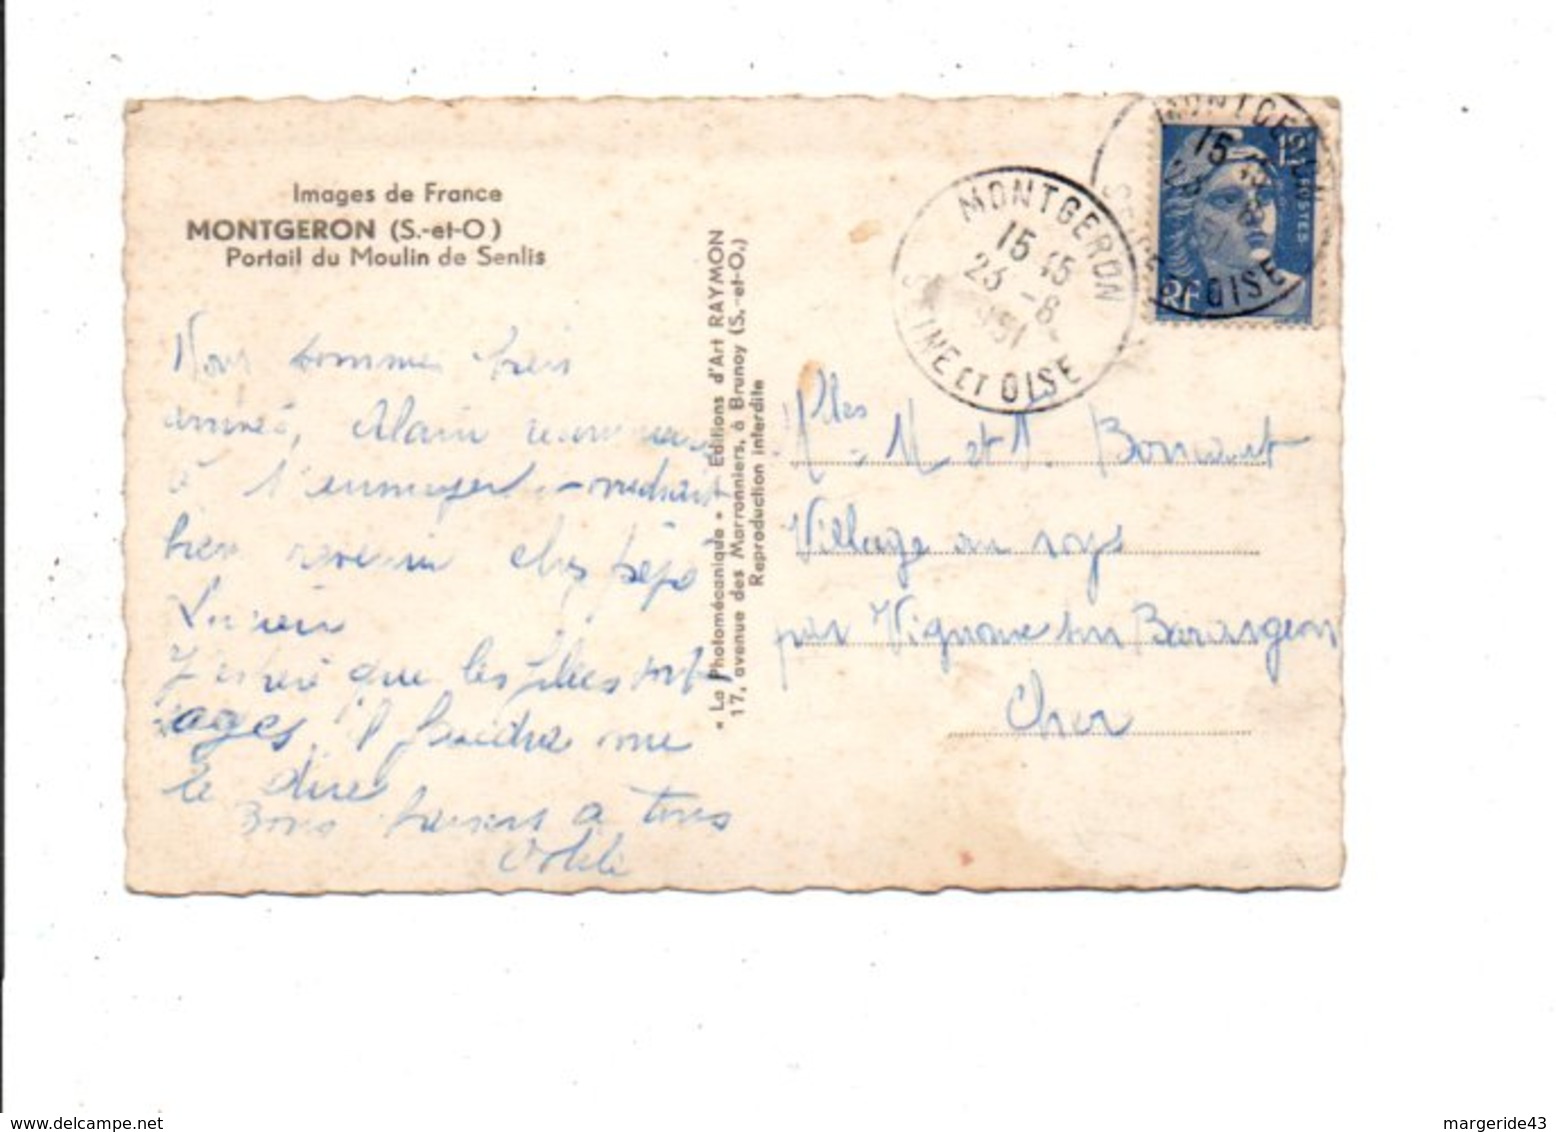 Images de France
MONTGERON (S.-et-O)
Portail du Moulin de Senlis
Nous sommes bien
arrivés, Alain
à l'ennuyer
bien revenir chez pépé
Lucien
J'espère que les filles sont
sages, il faudra me
le dire
Bons baisers a tous
« La Photomécanique » - Editions d'Art RAYMON
17, avenue des Marronniers, à Brunoy (S.-et-O.)
Reproduction interdite
MONTGERON
15 45
23 -8
1951
SEINE ET OISE
MONTGERON
15 45
SEINE ET OISE
15F
POSTES
RF
Mlles M et
Village au
par Vignoux sur Barangeon
Cher
margeride43